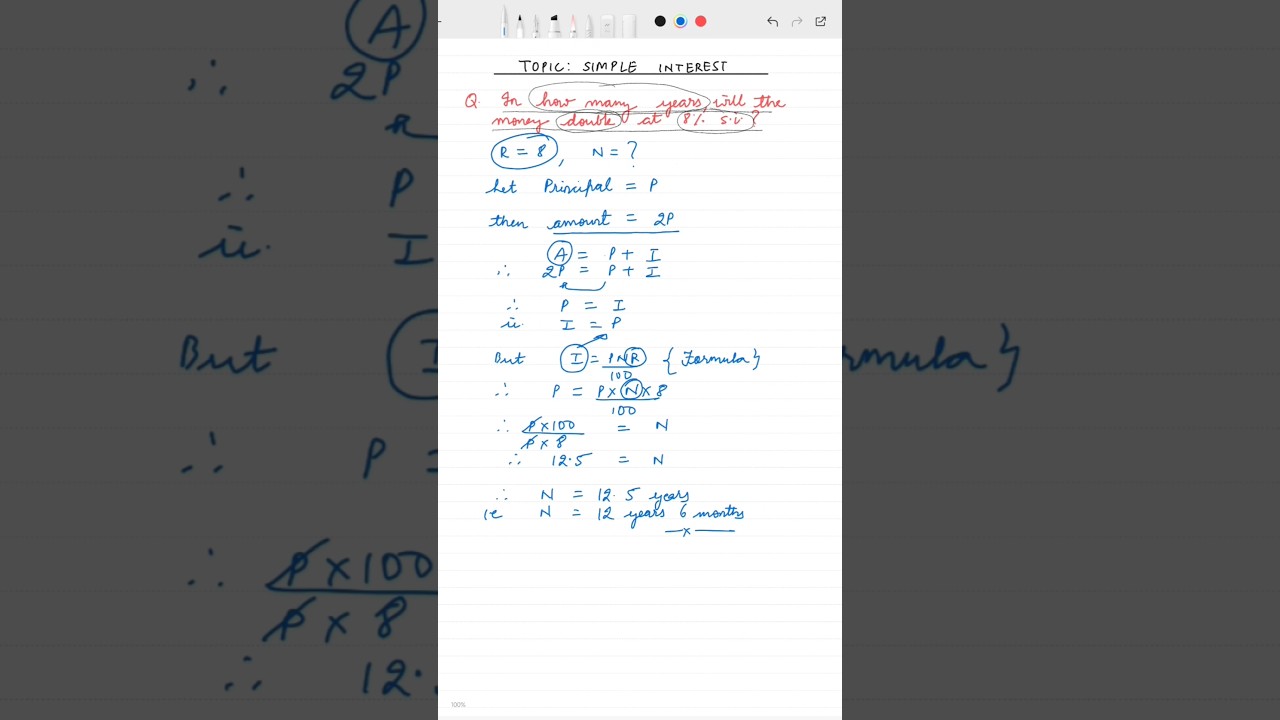 TOPIC: SIMPLE INTEREST
Q. In how many years will the
money double at 8% s.i?
R = 8, N = ?
Let Principal = P
then amount = 2P
A = P + I
∴ 2P = P + I
∴ P = I
ie. I = P
But I = PNR/100 {Formula}
∴ P = P × N × 8/100
∴ P × 100/P × 8 = N
∴ 12.5 = N
∴ N = 12.5 years
ie N = 12 years 6 months
x
100%
A
∴ 2P
∴ P
ie. I
But I
rmula}
∴ P =
∴ P × 100
P × 8
∴ 12.